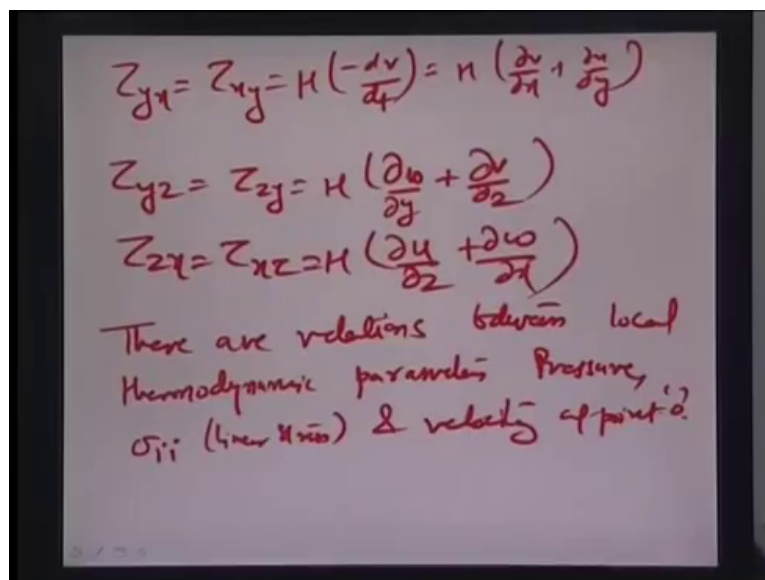 τyx = τxy = μ (-dγ/dt) = μ (∂v/∂x + ∂u/∂y)
τyz = τzy = μ (∂w/∂y + ∂v/∂z)
τzx = τxz = μ (∂u/∂z + ∂w/∂x)
There are relations between local
thermodynamic parameters Pressure,
σii (linear stress) & velocity at point 'o'.